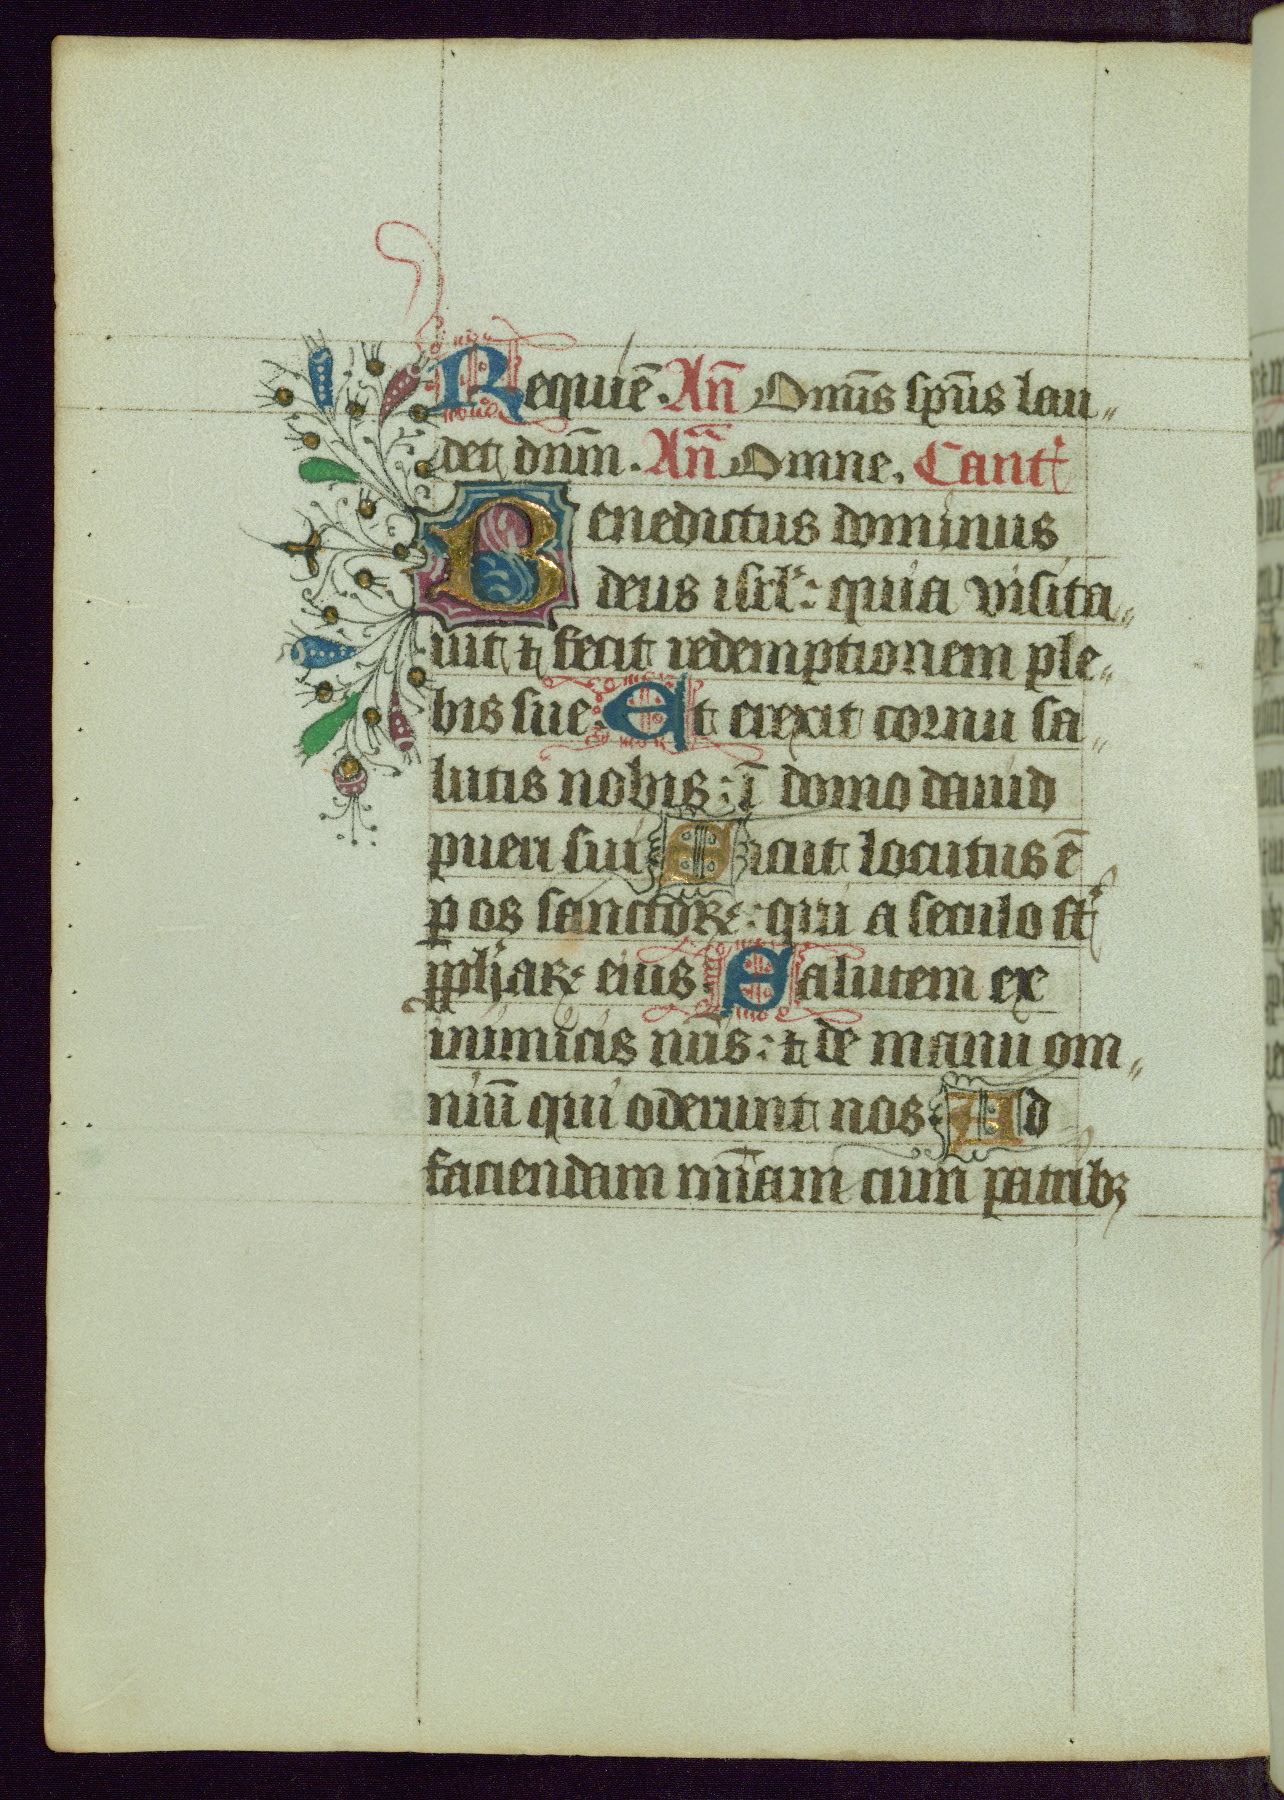 Requiē. An̄ Om̄is sp̄us lau〃
det dn̄m. An̄ Omne. Cant̛
Benedictus dominus
deus isrl̛: quia visita〃
uit ⁊ fecit redemptionem ple〃
bis sue. Et erexit cornu sa〃
lutis nobis: ī domo dauid
pueri sui Sicut locutus ē
ꝑ os sanctoꝝ: qui a seculo st̛
ꝓph̛aꝝ eius. Salutem ex
inimicis nr̄is: ⁊ de manu om〃
niū qui oderunt nos. Ad
faciendam mīam cum patribꝫ